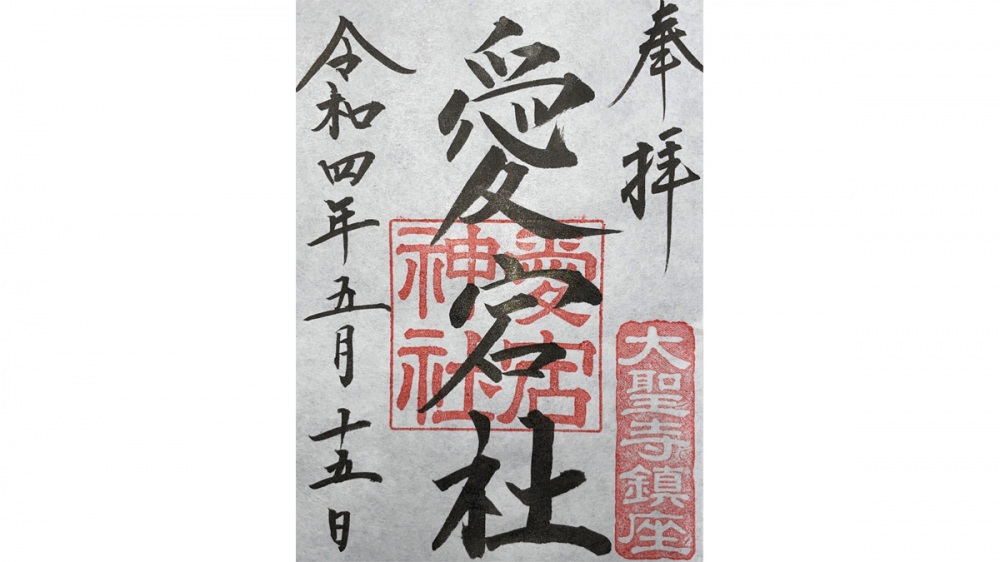 奉拝
大聖寺鎮座
愛宕社
愛宕
神社
令和四年五月十五日